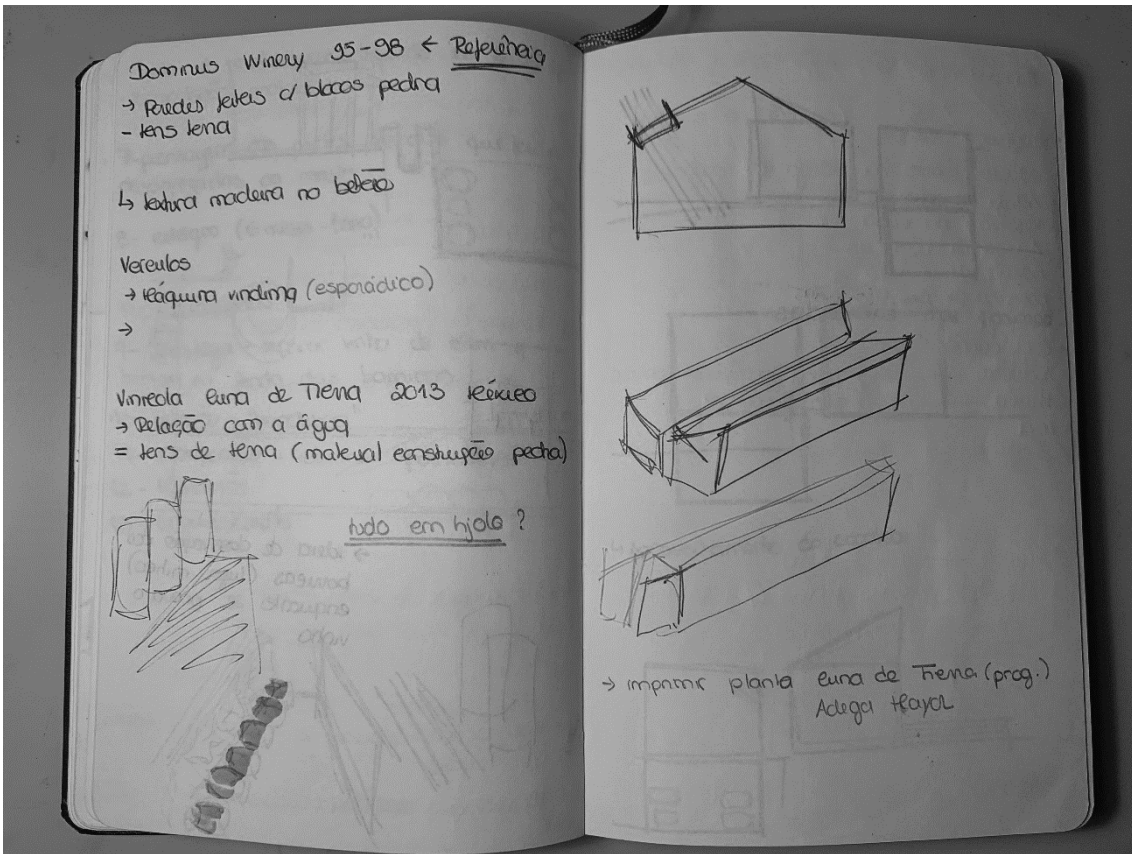 Dominus Winery 95-98 ← Referência
→ Paredes feitas c/ blocos pedra
- tons terra
↳ textura madeira no betão
Veículos
→ Máquina vindima (esporádico)
→
Vinícola Cuna de Tierra 2013 México
→ Relação com a água
= tons de terra (material construção pedra)
tudo em tijolo?
→ imprimir planta Cuna de Tierra (prog.)
Adega Mayor